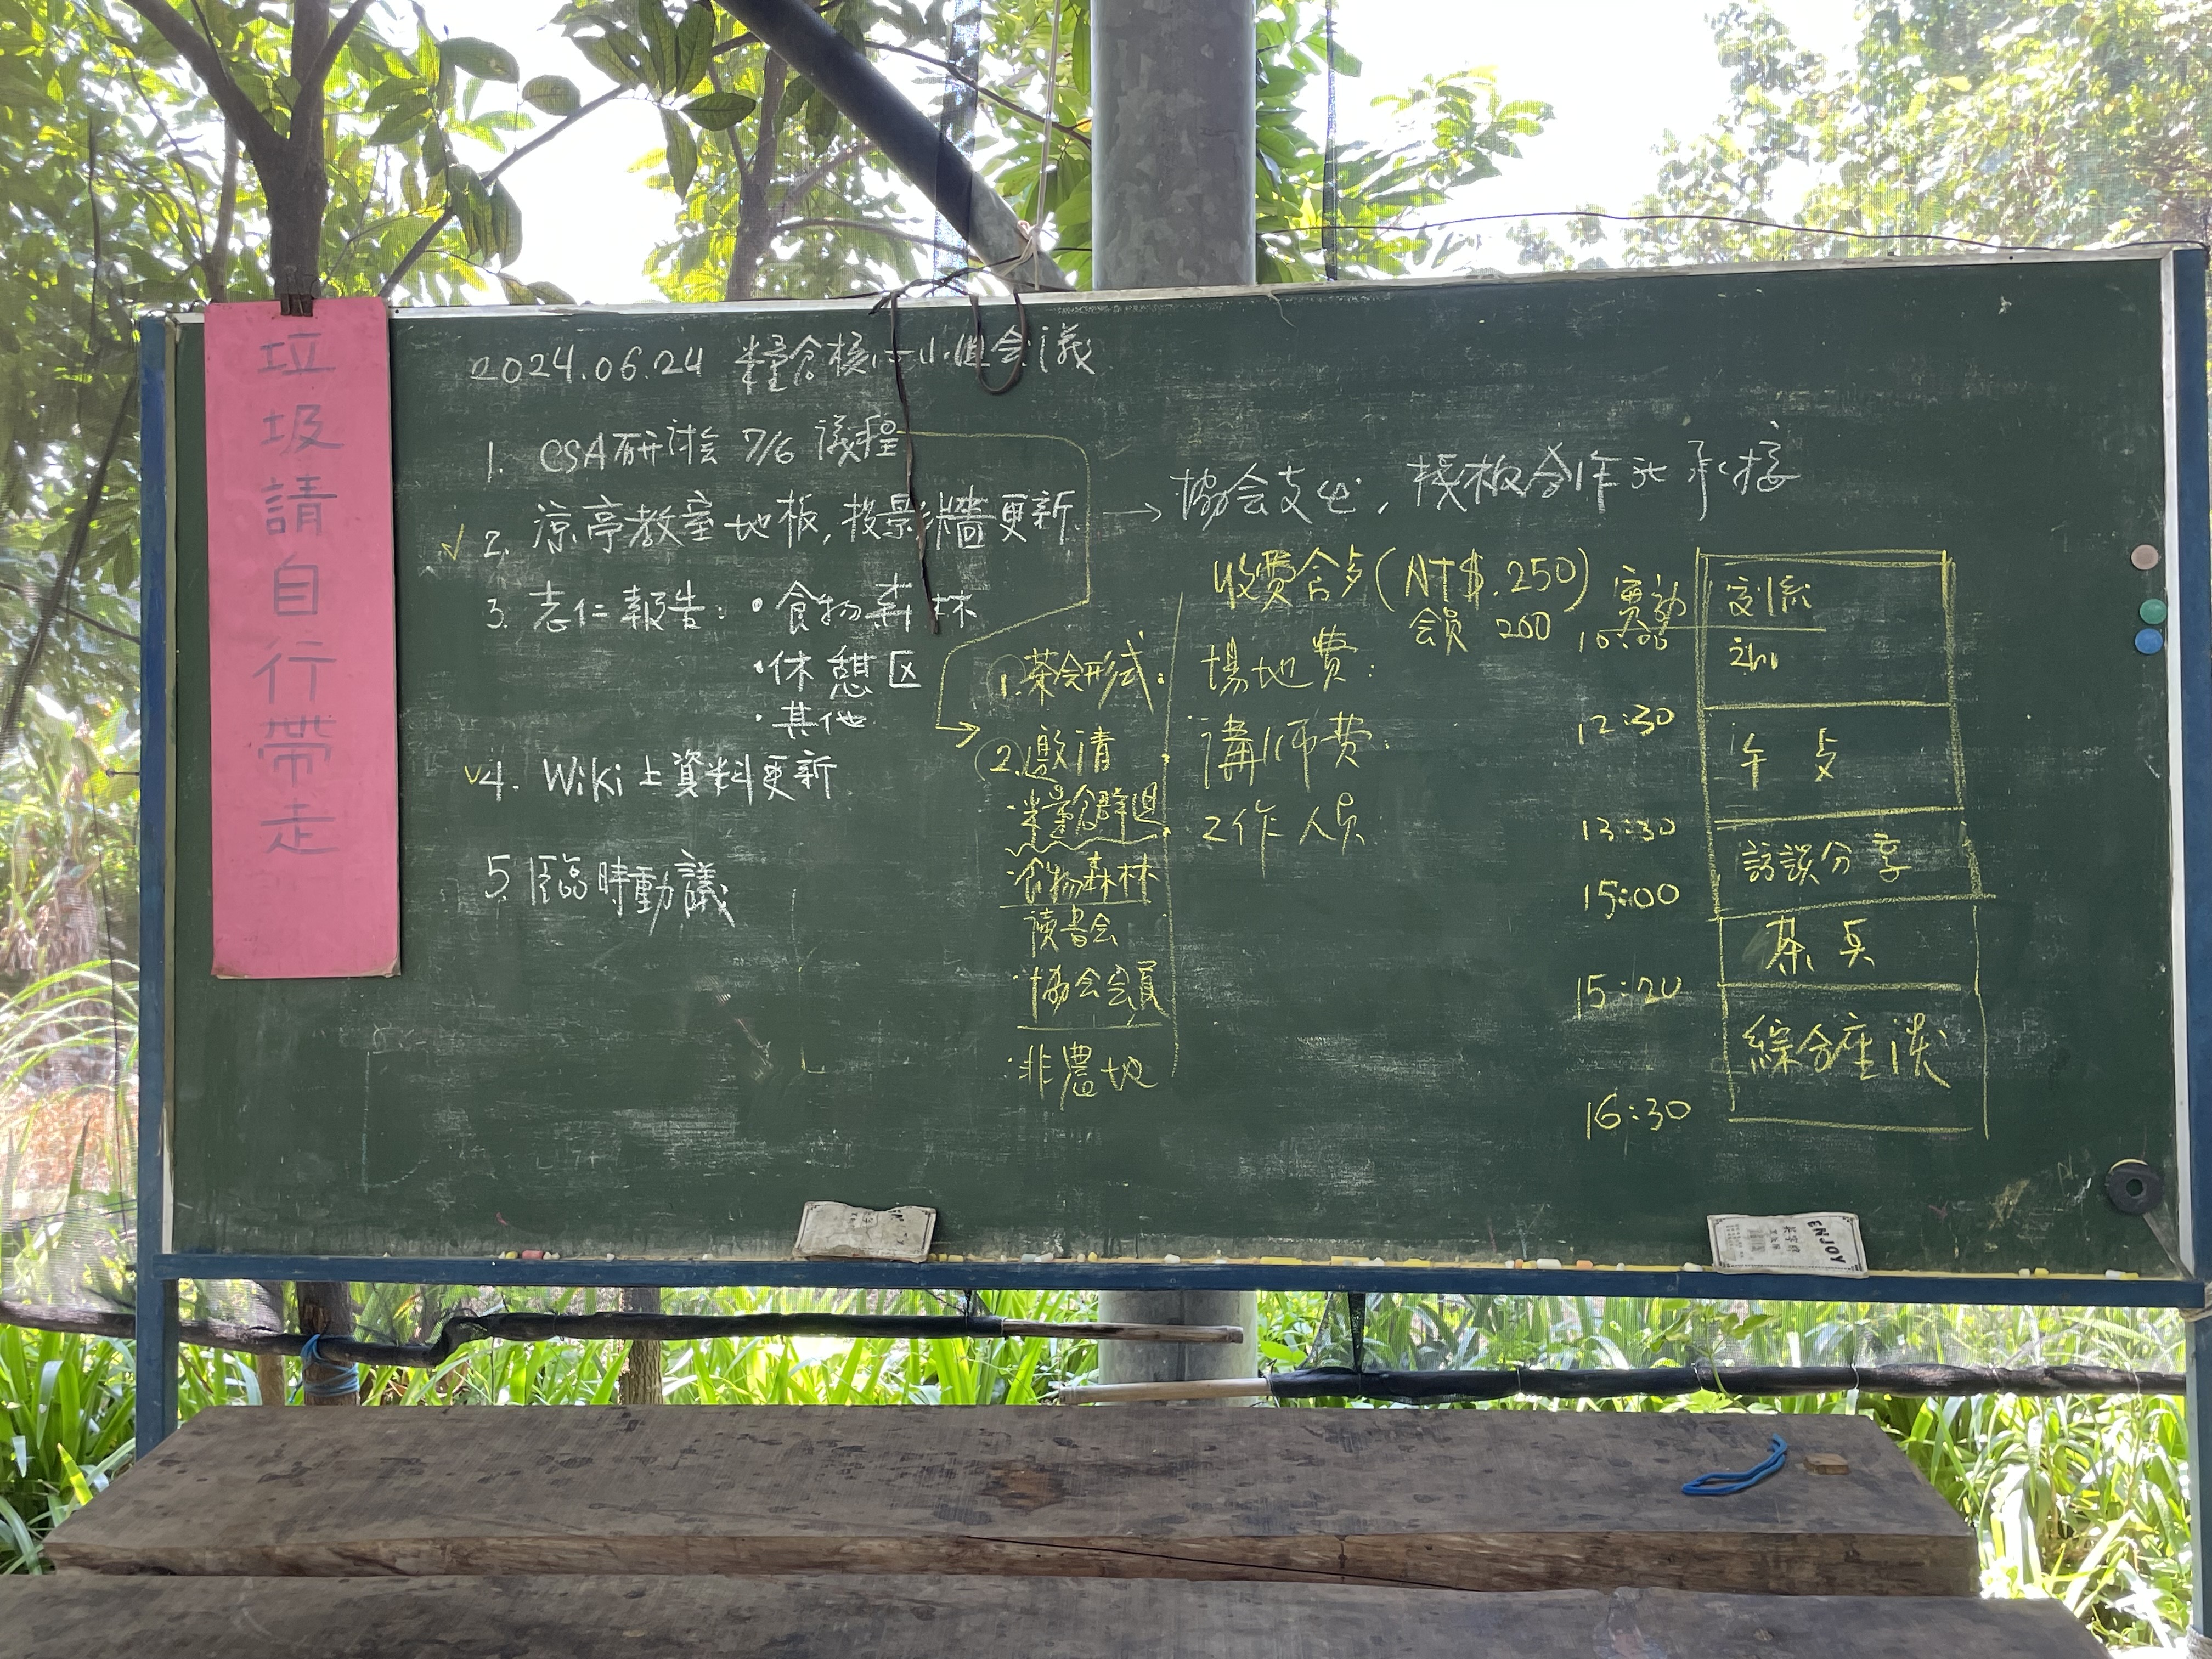 垃圾請自行帶走
2024.06.24 糧食核心小組会議
1. CSA研討会 7/6 議程
2. 凉亭教室地板,投影牆更新 → 協会支出,棧板合作社承接
3. 志仁報告:・食物森林
・休憩区
・其他
4. Wiki上資料更新
5 臨時動議
1.茶会形式:
2.邀請
食物森林
讀書会
・協会会員
・非農地
收費含歺(NT$.250)
会員 200
場地費:
講师費:
工作人員:
10:00
交流
12:30
午 歺
13:30
訪談分享
15:00
茶 点
15:20
綜合座談
16:30
ENJOY